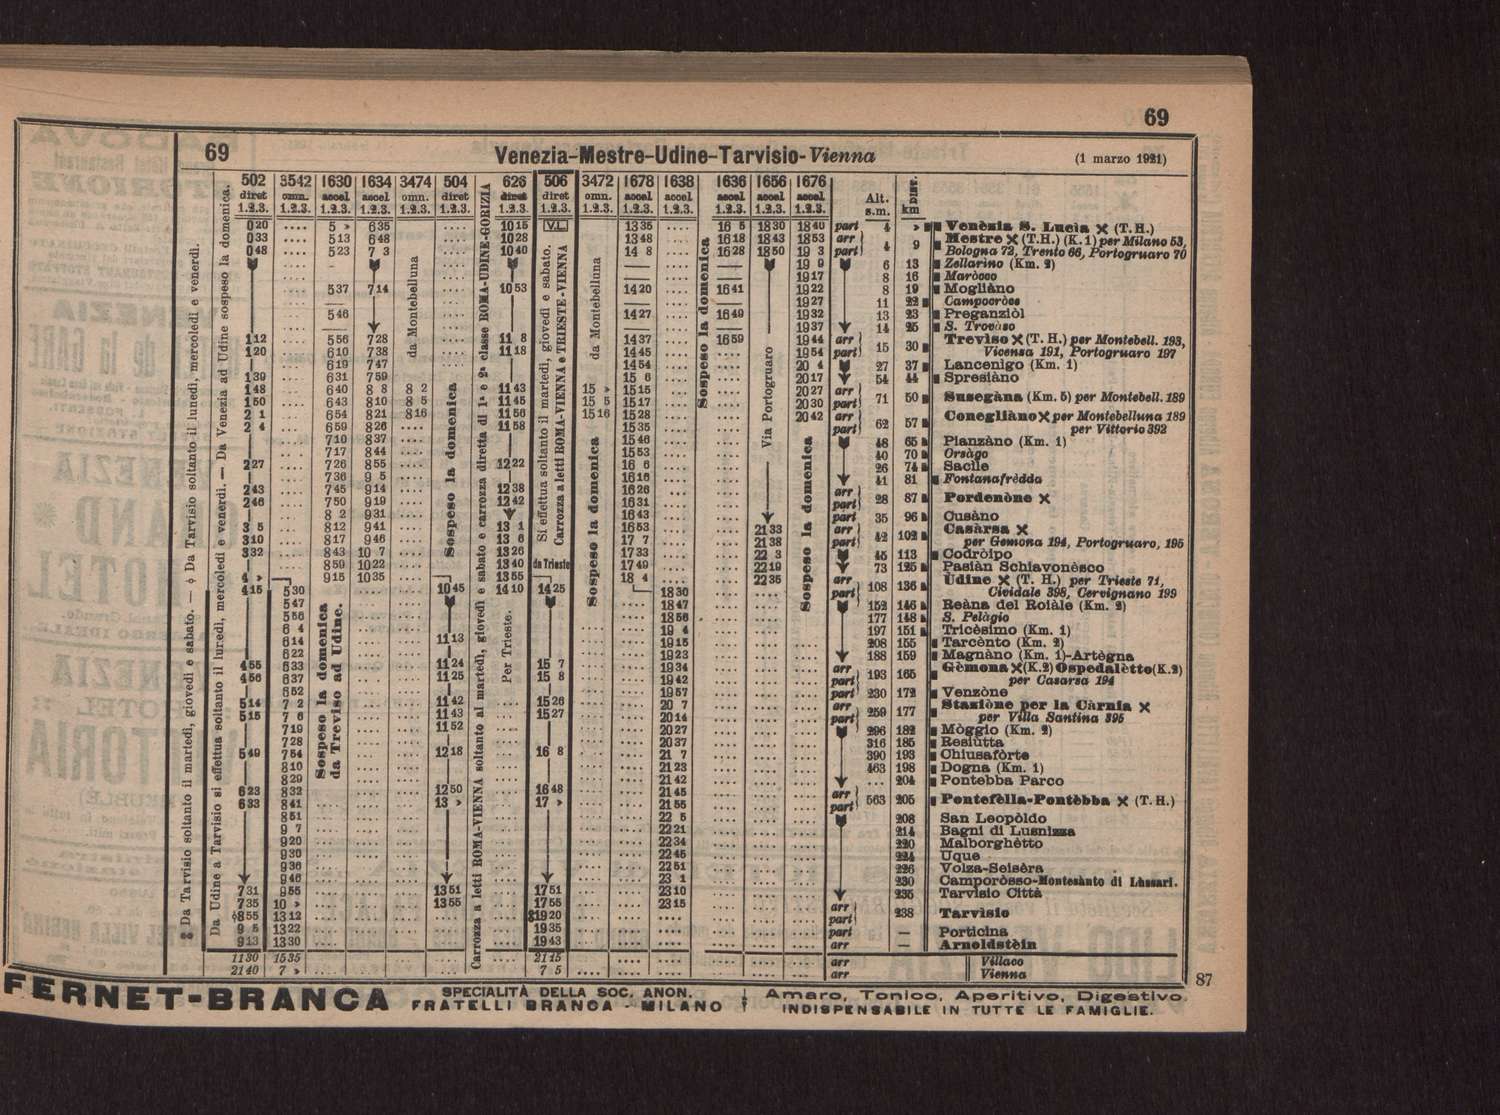 69
69 Venezia-Mestre-Udine-Tarvisio-Vienna (1 marzo 1921)
502 3542 1630 1634 3474 504 626 506 3472 1678 1638 1636 1656 1676
diret omn. accel accel omn. diret diret diret omn. accel accel accel accel accel Alt. s.m. DIST. km
1.2.3. 1.2.3. 1.2.3. 1.2.3. 1.2.3. 1.2.3. 1.2.3. 1.2.3. 1.2.3. 1.2.3. 1.2.3. 1.2.3. 1.2.3. 1.2.3.
Da Tarvisio soltanto il martedì, giovedì e sabato. — ϕ Da Tarvisio soltanto il lunedì, mercoledì e venerdì.
Da Udine a Tarvisio si effettua soltanto il lunedì, mercoledì e venerdì. — Da Venezia ad Udine sospeso la domenica.
Sospeso la domenica da Treviso ad Udine.
da Montebelluna
Sospeso la domenica
Carrozza a letti ROMA-VIENNA soltanto al martedì, giovedì e sabato e carrozza diretta di 1ª e 2ª classe ROMA-UDINE-GORIZIA
Per Trieste.
V.L.
Si effettua soltanto il martedì, giovedì e sabato.
Carrozza a letti ROMA-VIENNA e TRIESTE-VIENNA
da Trieste
da Montebelluna
Sospeso la domenica
Sospeso la domenica
Via Portogruaro
Sospeso la domenica
0 20 .... 5 » 6 35 10 15 13 35 16 5 18 30 18 40 part 4 » Venèzia S. Lucìa (T.H.)
0 33 .... 5 13 6 48 10 28 13 48 16 18 18 43 18 53 arr 4 9 Mestre (T.H.) (K. 1) per Milano 53,
0 48 .... 5 23 7 3 10 40 14 8 16 28 18 50 19 3 part Bologna 72, Trento 66, Portogruaro 70
19 9 6 13 Zellarino (Km. 2)
19 17 8 16 Maròcco
5 37 7 14 10 53 14 20 16 41 19 22 8 19 Mogliàno
19 27 11 22 Campocròce
5 46 14 27 16 49 19 32 13 23 Preganziòl
19 37 14 25 S. Trovàso
1 12 5 56 7 28 11 8 14 37 16 59 19 44 arr 15 30 Treviso (T. H.) per Montebell. 193,
1 20 6 10 7 38 11 18 14 45 19 54 part Vicensa 191, Portogruaro 197
6 19 7 47 14 54 20 4 27 37 Lancenigo (Km. 1)
1 39 6 31 7 59 15 6 20 17 54 44 Spresiàno
1 48 6 40 8 8 8 2 11 43 15 » 15 15 20 27 arr 71 50 Susegàna (Km. 5) per Montebell. 189
1 50 6 43 8 10 8 5 11 45 15 5 15 17 20 30 part
2 1 6 54 8 21 8 16 11 56 15 16 15 28 20 42 arr 62 57 Conegliàno per Montebelluna 189
2 4 6 59 8 26 11 58 15 35 part per Vittorio 392
7 10 8 37 15 46 48 65 Pianzàno (Km. 1)
7 17 8 44 15 53 40 70 Orsàgo
2 27 7 26 8 55 12 22 16 6 26 74 Sacile
7 36 9 5 16 16 41 81 Fontanafrèdda
2 43 7 45 9 14 12 38 16 26 arr 28 87 Pordenòne
2 46 7 50 9 19 12 42 16 31 part
8 2 9 31 16 43 part 35 96 Cusàno
3 5 8 12 9 41 13 1 16 53 21 33 arr 42 102 Casàrsa
3 10 8 17 9 46 13 6 17 7 21 38 part per Gemona 194, Portogruaro, 195
3 32 8 43 10 7 13 26 17 33 22 3 45 113 Codròipo
8 59 10 22 13 40 17 49 22 19 73 125 Pasiàn Schiavonèsco
4 » 9 15 10 35 13 55 18 4 22 35 arr 108 136 Udine (T. H.) per Trieste 71,
4 15 5 30 10 45 14 10 14 25 18 30 part Cividale 398, Cervignano 199
5 47 18 47 152 146 Reàna del Roiàle (Km. 2)
5 56 18 56 177 148 S. Pelàgio
6 4 19 4 197 151 Tricèsimo (Km. 1)
6 14 11 13 19 15 208 155 Tarcènto (Km. 2)
6 22 19 23 188 159 Magnàno (Km. 1)-Artègna
4 55 6 33 11 24 15 7 19 34 arr 193 165 Gèmona (K.2) Ospedalètto (K.2)
4 56 6 37 11 25 15 8 19 42 part per Casarsa 194
6 52 19 57 230 172 Venzòne
5 14 7 2 11 42 15 26 20 7 arr 259 177 Stazióne per la Càrnia
5 15 7 6 11 43 15 27 20 14 part per Villa Santina 395
7 19 11 52 20 27 296 182 Mòggio (Km. 2)
7 28 20 37 316 185 Resiutta
5 49 7 54 12 18 16 8 21 7 390 193 Chiusafòrte
8 10 21 23 463 198 Dogna (Km. 1)
8 29 21 42 ... 204 Pontebba Parco
6 23 8 32 12 50 16 48 21 45 arr 563 205 Pontefèlla-Pontèbba (T.H.)
6 33 8 41 13 » 17 » 21 55 part
8 51 22 5 208 San Leopòldo
9 7 22 21 214 Bagni di Lusnizza
9 20 22 34 220 Malborghètto
9 30 22 45 224 Uque
9 36 22 51 226 Volza-Seisèra
9 46 23 1 230 Camporòsso-Montesànto di Lùssari.
7 31 9 55 13 51 17 51 23 10 235 Tarvisio Città
7 35 10 » 13 55 17 55 23 15 arr 238 Tarvisio
ϕ8 55 13 12 19 20 part
9 5 13 22 19 35 part — Porticina
9 13 13 30 19 43 arr — Arnoldstèin
11 30 15 35 21 15 arr Villaco
21 40 7 » 7 5 arr Vienna
87
FERNET-BRANCA SPECIALITÀ DELLA SOC. ANON. FRATELLI BRANCA - MILANO
Amaro, Tonico, Aperitivo, Digestivo.
INDISPENSABILE IN TUTTE LE FAMIGLIE.